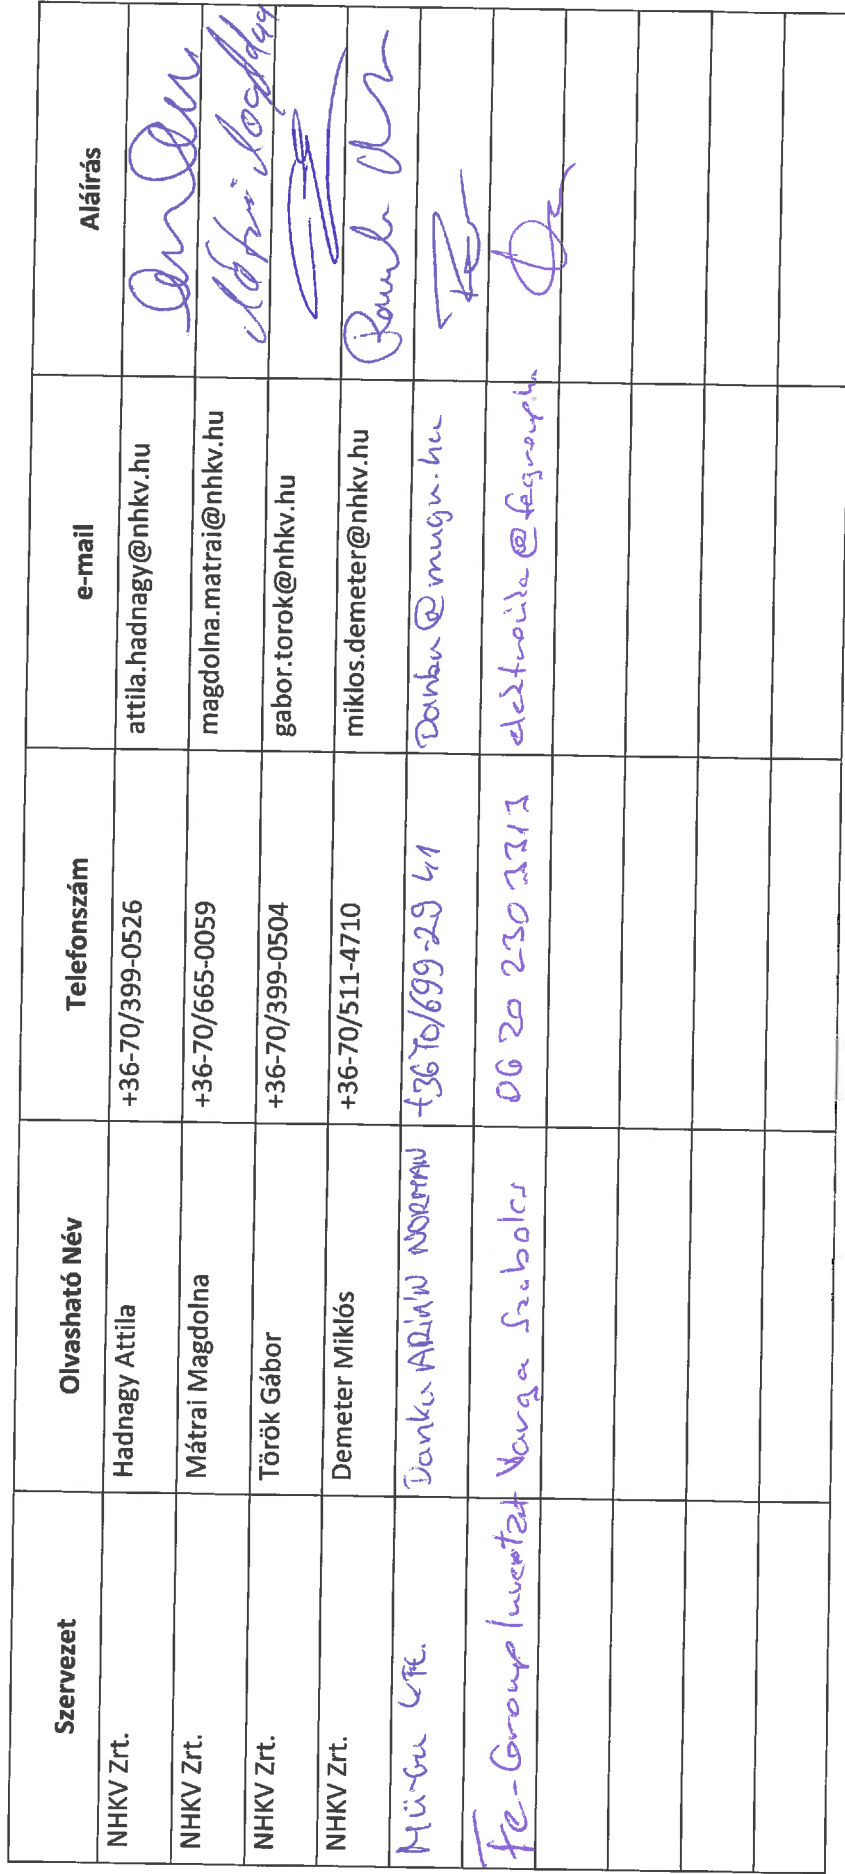 Szervezet Olvasható Név Telefonszám e-mail Aláírás
NHKV Zrt. Hadnagy Attila +36-70/399-0526 attila.hadnagy@nhkv.hu
NHKV Zrt. Mátrai Magdolna +36-70/665-0059 magdolna.matrai@nhkv.hu Mátrai Magdolna
NHKV Zrt. Török Gábor +36-70/399-0504 gabor.torok@nhkv.hu
NHKV Zrt. Demeter Miklós +36-70/511-4710 miklos.demeter@nhkv.hu
Mü-Gu Kft. Danku NORMAN +3670/699-29 41
Fe-Group Invest Zrt Varga Szabolcs 06 20 230 3313